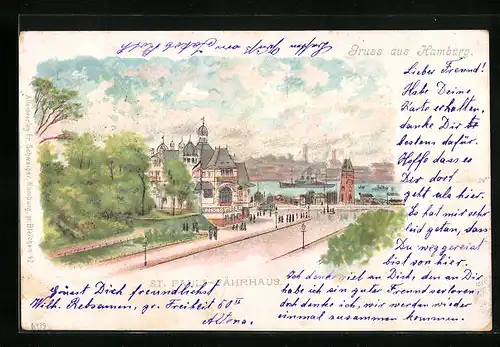 Gruss aus Hamburg.
Lieber Freund!
Habe Deine
Karte erhalten,
danke Dir
bestens dafür.
Hoffe dass es
Dir dort
geht als hier.
Es hat mir sehr
leid getan, dass
Du weggereist
bist von hier.
Ich denke viel an Dich, den an Dir
habe ich ein guter Freund verloren,
doch denke ich, wir werden wieder
einmal zusammen kommen.
ST. PAULI FÄHRHAUS
Grüsst Dich freundlichst
Wilh. Rebsamen, gr. Freiheit 60 II
Altona.